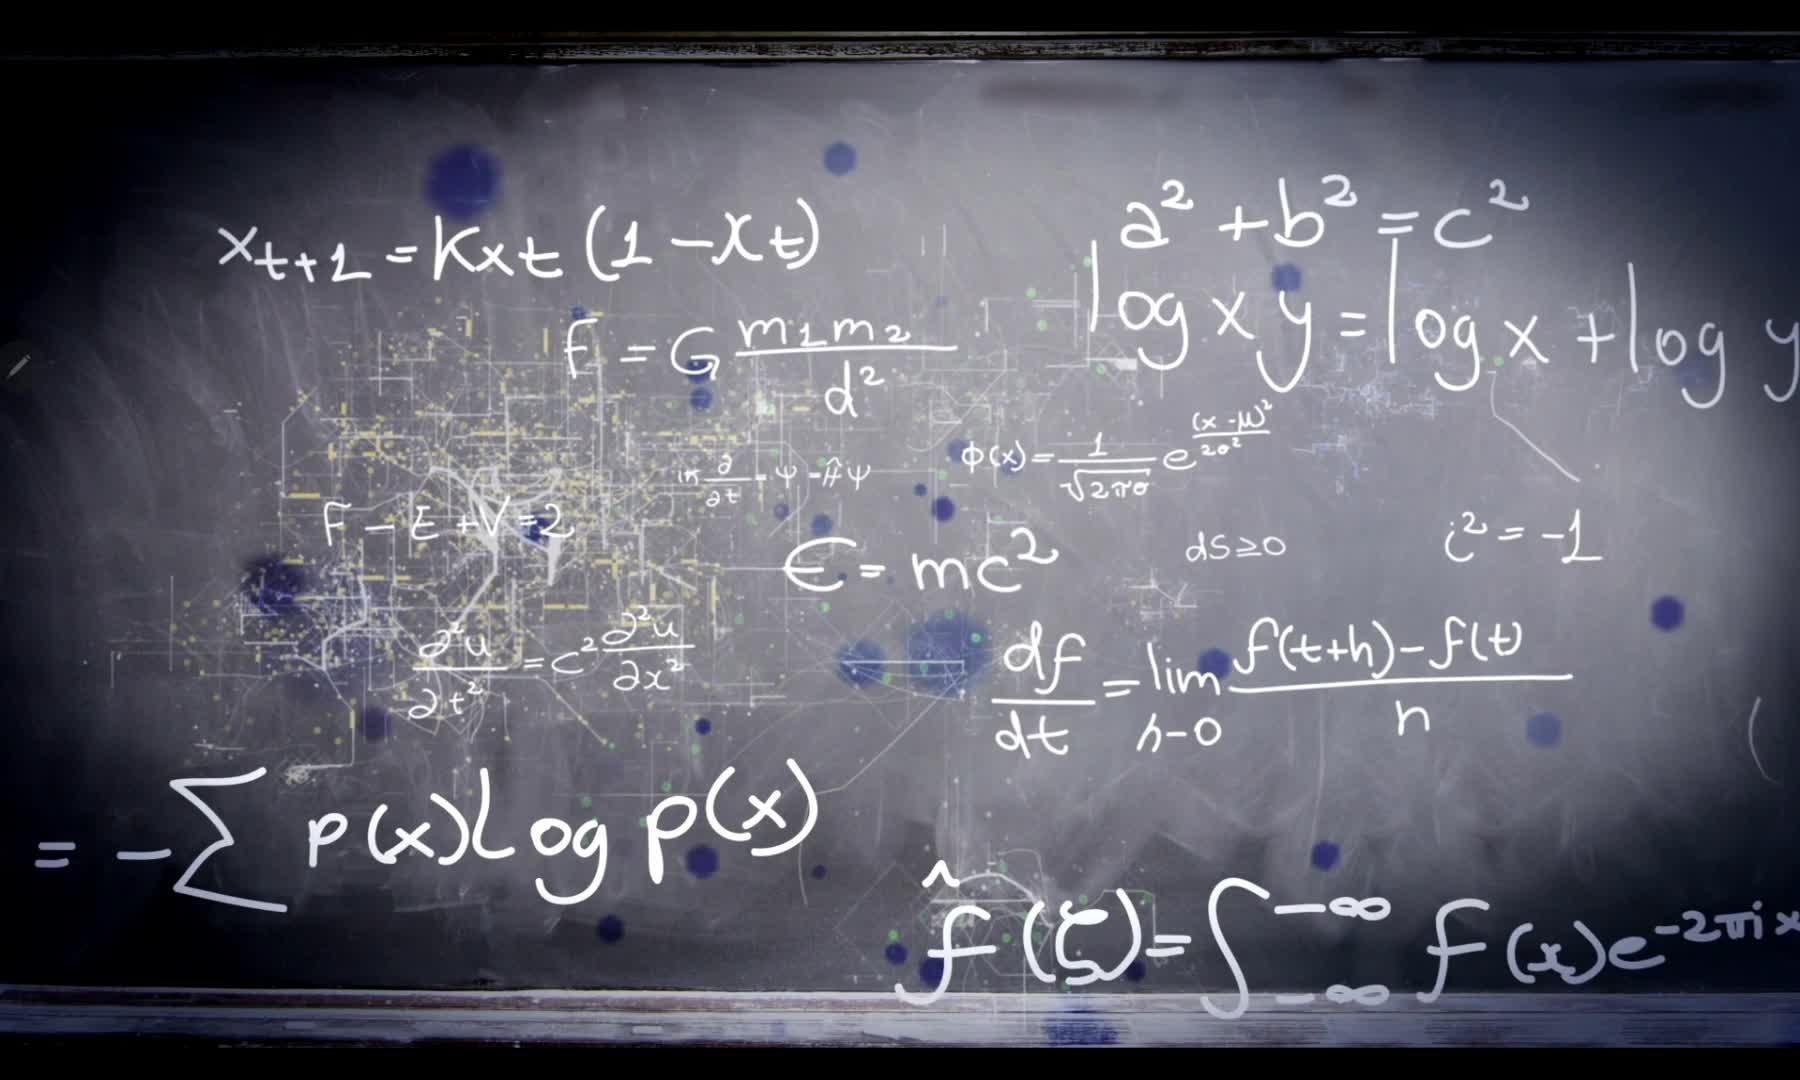 x_{t+1} = Kx_t (1 - x_t)
a² + b² = c²
log xy = log x + log y
F = G m₁m₂ / d²
Φ(x) = 1/√2πσ e^{(x-μ)²/2σ²}
∂/∂t = ψ = Ĥψ
F - E + V = 2
E = mc²
dS ≥ 0
i² = -1
∂²u/∂t² = c² ∂²u/∂x²
df/dt = lim h-0 f(t+h) - f(t) / h
= - ∑ p(x) log p(x)
f̂(ζ) = ∫_{-∞}^{-∞} f(x)e^{-2πix